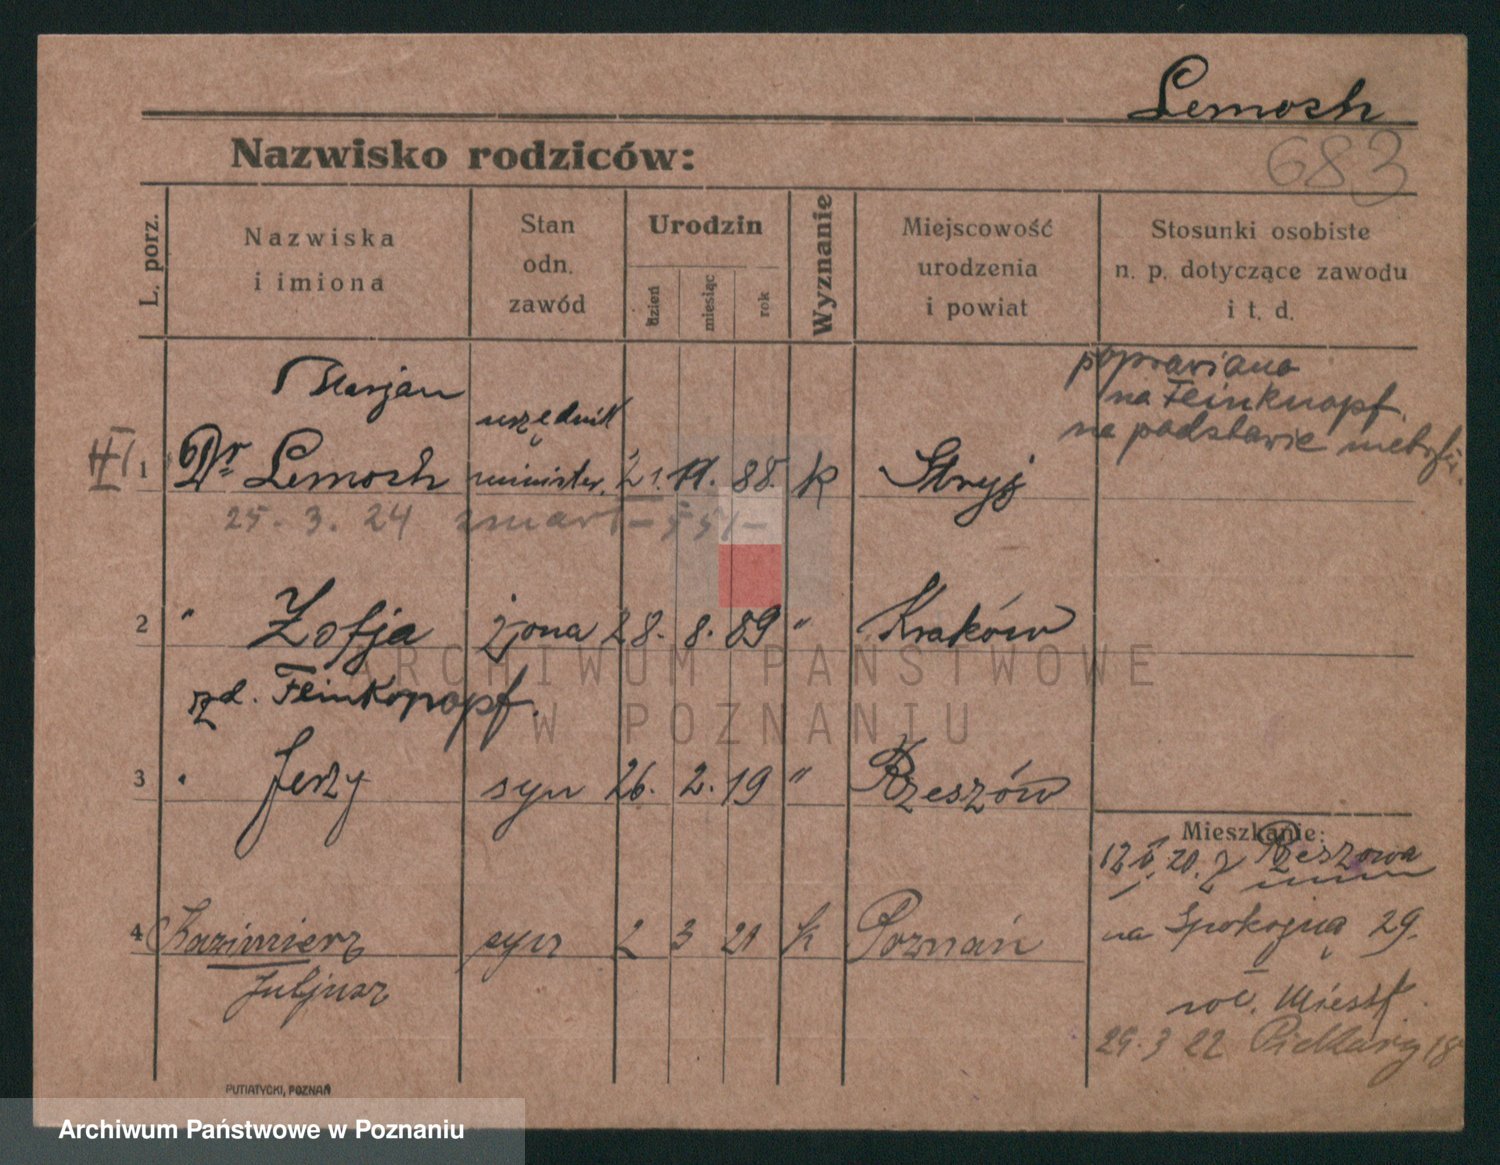 Lemosh
683
Nazwisko rodziców:
L. porz.
Nazwiska
i imiona
Stan
odn.
zawód
Urodzin
dzień
miesiąc
rok
Wyznanie
Miejscowość
urodzenia
i powiat
Stosunki osobiste
n. p. dotyczące zawodu
i t. d.
poprawiana
na Feinknopf.
na podstawie metryki.
Marjan
urzędnik
1 Dr Lemosh minister. 21. 11. 88. k Stryj
25. 3. 24 zmarł
2 " Zofja żona 28. 8. 89 " Kraków
zd. Feinkopopf.
3 " Jerzy syn 26. 2. 19 " Rzeszów
Mieszkanie:
12. 20. z Rzeszowa
4 Kazimierz syn 2 3 21 k Poznań
na Spokojną 29.
Juljusz
29. 3 22 Piekary 18
PUTIATYCKI, POZNAŃ
ARCHIWUM PAŃSTWOWE
W POZNANIU
Archiwum Państwowe w Poznaniu